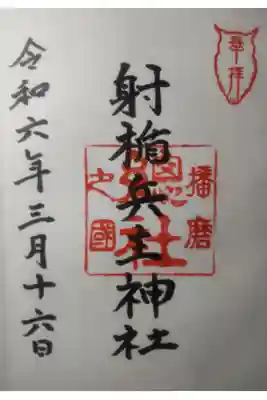 奉拝
播磨
之國
總社
射楯兵主神社
令和六年三月十六日